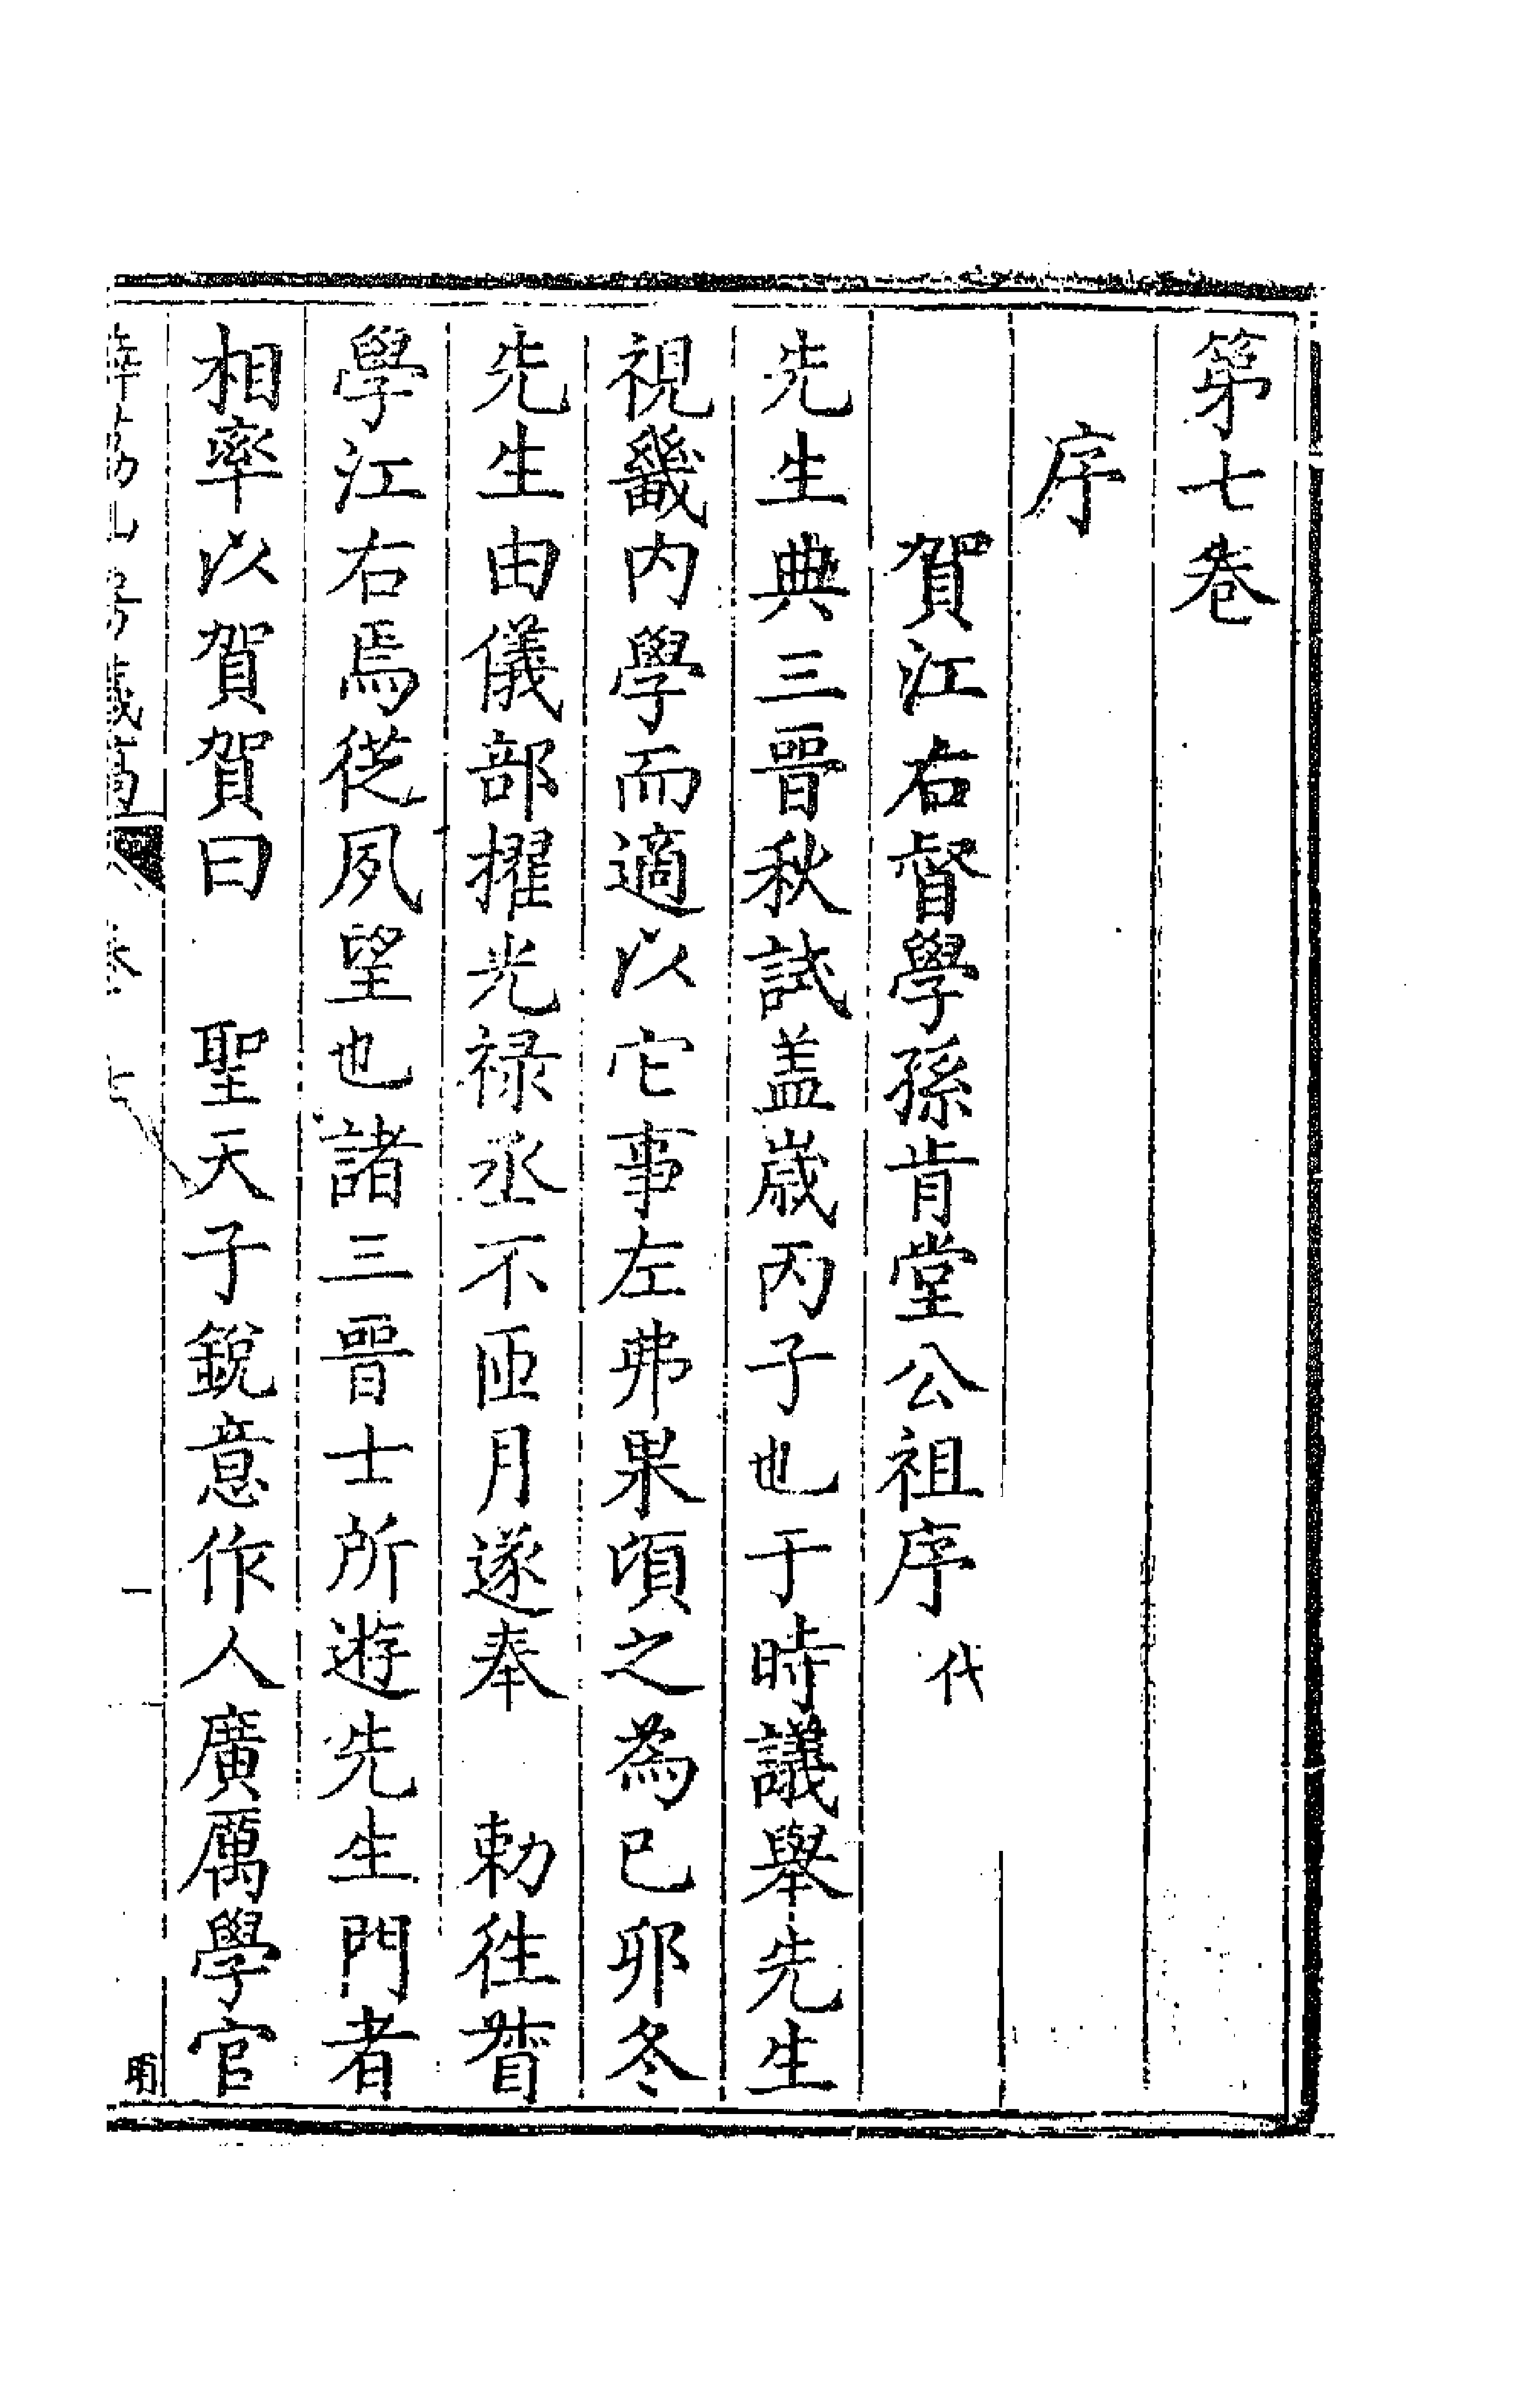 第七卷
序
賀江右督學孫肯堂公祖序 代
先生典三晉秋試盖嵗丙子也于時議舉先生
視畿内學而適以它事左弗果頃之為已卯冬
先生由儀部擢光禄丞不匝月遂奉 勅徃督
學江右焉從夙望也諸三晉士所遊先生門者
相率以賀賀曰 聖天子銳意作人廣厲學官
卷 七 一